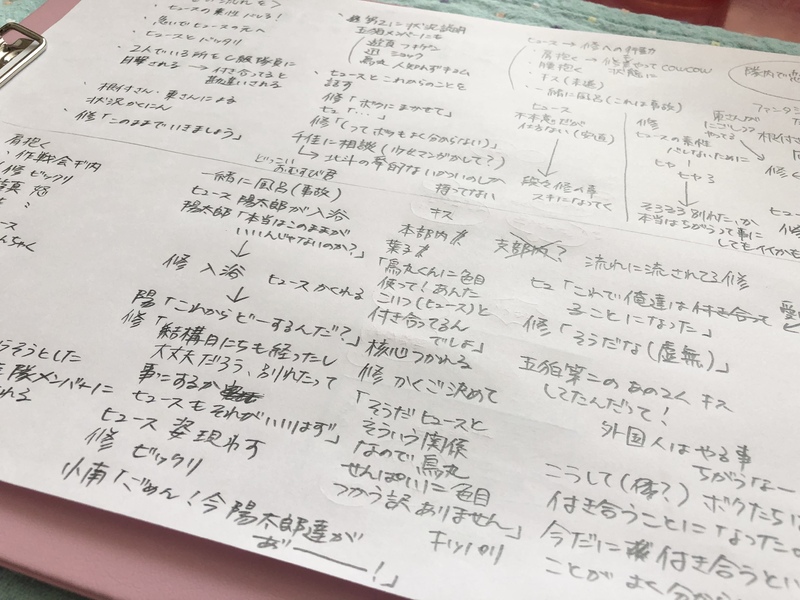 ・ヒュースの素性バレる!
・急いでヒュースの元へ
・ヒュースとバッタリ
・2人でいる所をC級隊員に
目撃される → 付き合ってると
勘違いされる
・根付さん・東さんによる
状況かくにん
・修「このままでいきましょう」
・第2に状況説明
玉狛メンバーにも
遊真 フキゲン
迅 ショック
烏丸 人知れずキョム
・ヒュースとこれからのことを
話す
修「ボクにまかせて」
ヒュ「…」
修「(ってボクもよく分からない)」
千佳に相談(少女マンガかして?)
↳ 北斗の拳的ないかついのしか
持ってない
どっこい
おむすび君
ヒュース → 修への
・肩抱く → 修真せって COWCOW
・腰抱く 状態に
・キス(未遂)
・一緒に風呂(これは事故)
ヒュース
不本意だが
仕方ない(安直)
↓
段々修の事
スキになってく
修
ヒュースの素性
バレないために
ヒャ!
ヒャろ
↓
そろそろ別れたいか
本当はちがうって事に
してもイイかも
東さんが
にごしつつ
やってる
隊内で恋
ファンタジ
根付さ
修く
肩抱く
・作戦会ギ内
修 ビックリ
一緒に風呂(事故)
ヒュース 陽太郎が入浴
陽太郎「本当はこのままが
いいんじゃないのか?」
↓
修 入浴 ヒュースかくれる
↓
陽「これからどーするんだ?」
修「
結構日にちも経ったし
大丈夫だろう、別れたって
事にするか
ヒュースもそれがいいはず」
ヒュース 姿現わす
修 ビックリ
小南「ごめん!今陽太郎達が
あ゛ーーー!」
うそうとした
隊メンバーに
れる
キス
本部内
葉子
「烏丸くんに色目
使って!あんた
こいつ(ヒュース)と
付き合ってるん
でしょ」
核心つかれる
修 かくご決めて
「そうだ ヒュースと
そういう関係
なので烏丸
せんぱいに色目
つかう訳 ありません」
キッパリ
支部内?
流れに流されてる修
ヒュ「これで俺達は付き合って
ることになった」
修「そうだな(虚無)」
玉狛第二のあの2人 キス
してたんだって!
外国人はやる事
ちがうなー
こうして(僕?)ボクたちは
付き合うことになったの
今だに 付き合うとい
ことが よく分から